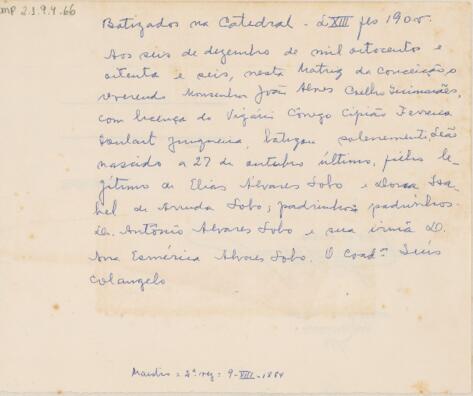 MP 2.1.9.4.66
Batizados na Catedral - L XIII fls 190 v.
Aos seis de dezembro de mil oitocentos e
oitenta e seis, nesta Matriz da Conceição, o
reverendo Monsenhor João Alves Coelho Guimarães,
com licença do Vigário Cônego Cipião Ferreira
Goulart Junqueira, batizou solenemente, Leão
nascido a 27 de outubro último, filho le-
gítimo de Elias Alvares Lobo e Dona Isa-
bel de Arruda Lobo; padrinhos padrinhos
D. Antônio Alvares Lobo e sua irmã D.
Ana Esmérica Alvares Lobo. O coad.
Colangelo
2ª vez = 9-VIII-1884